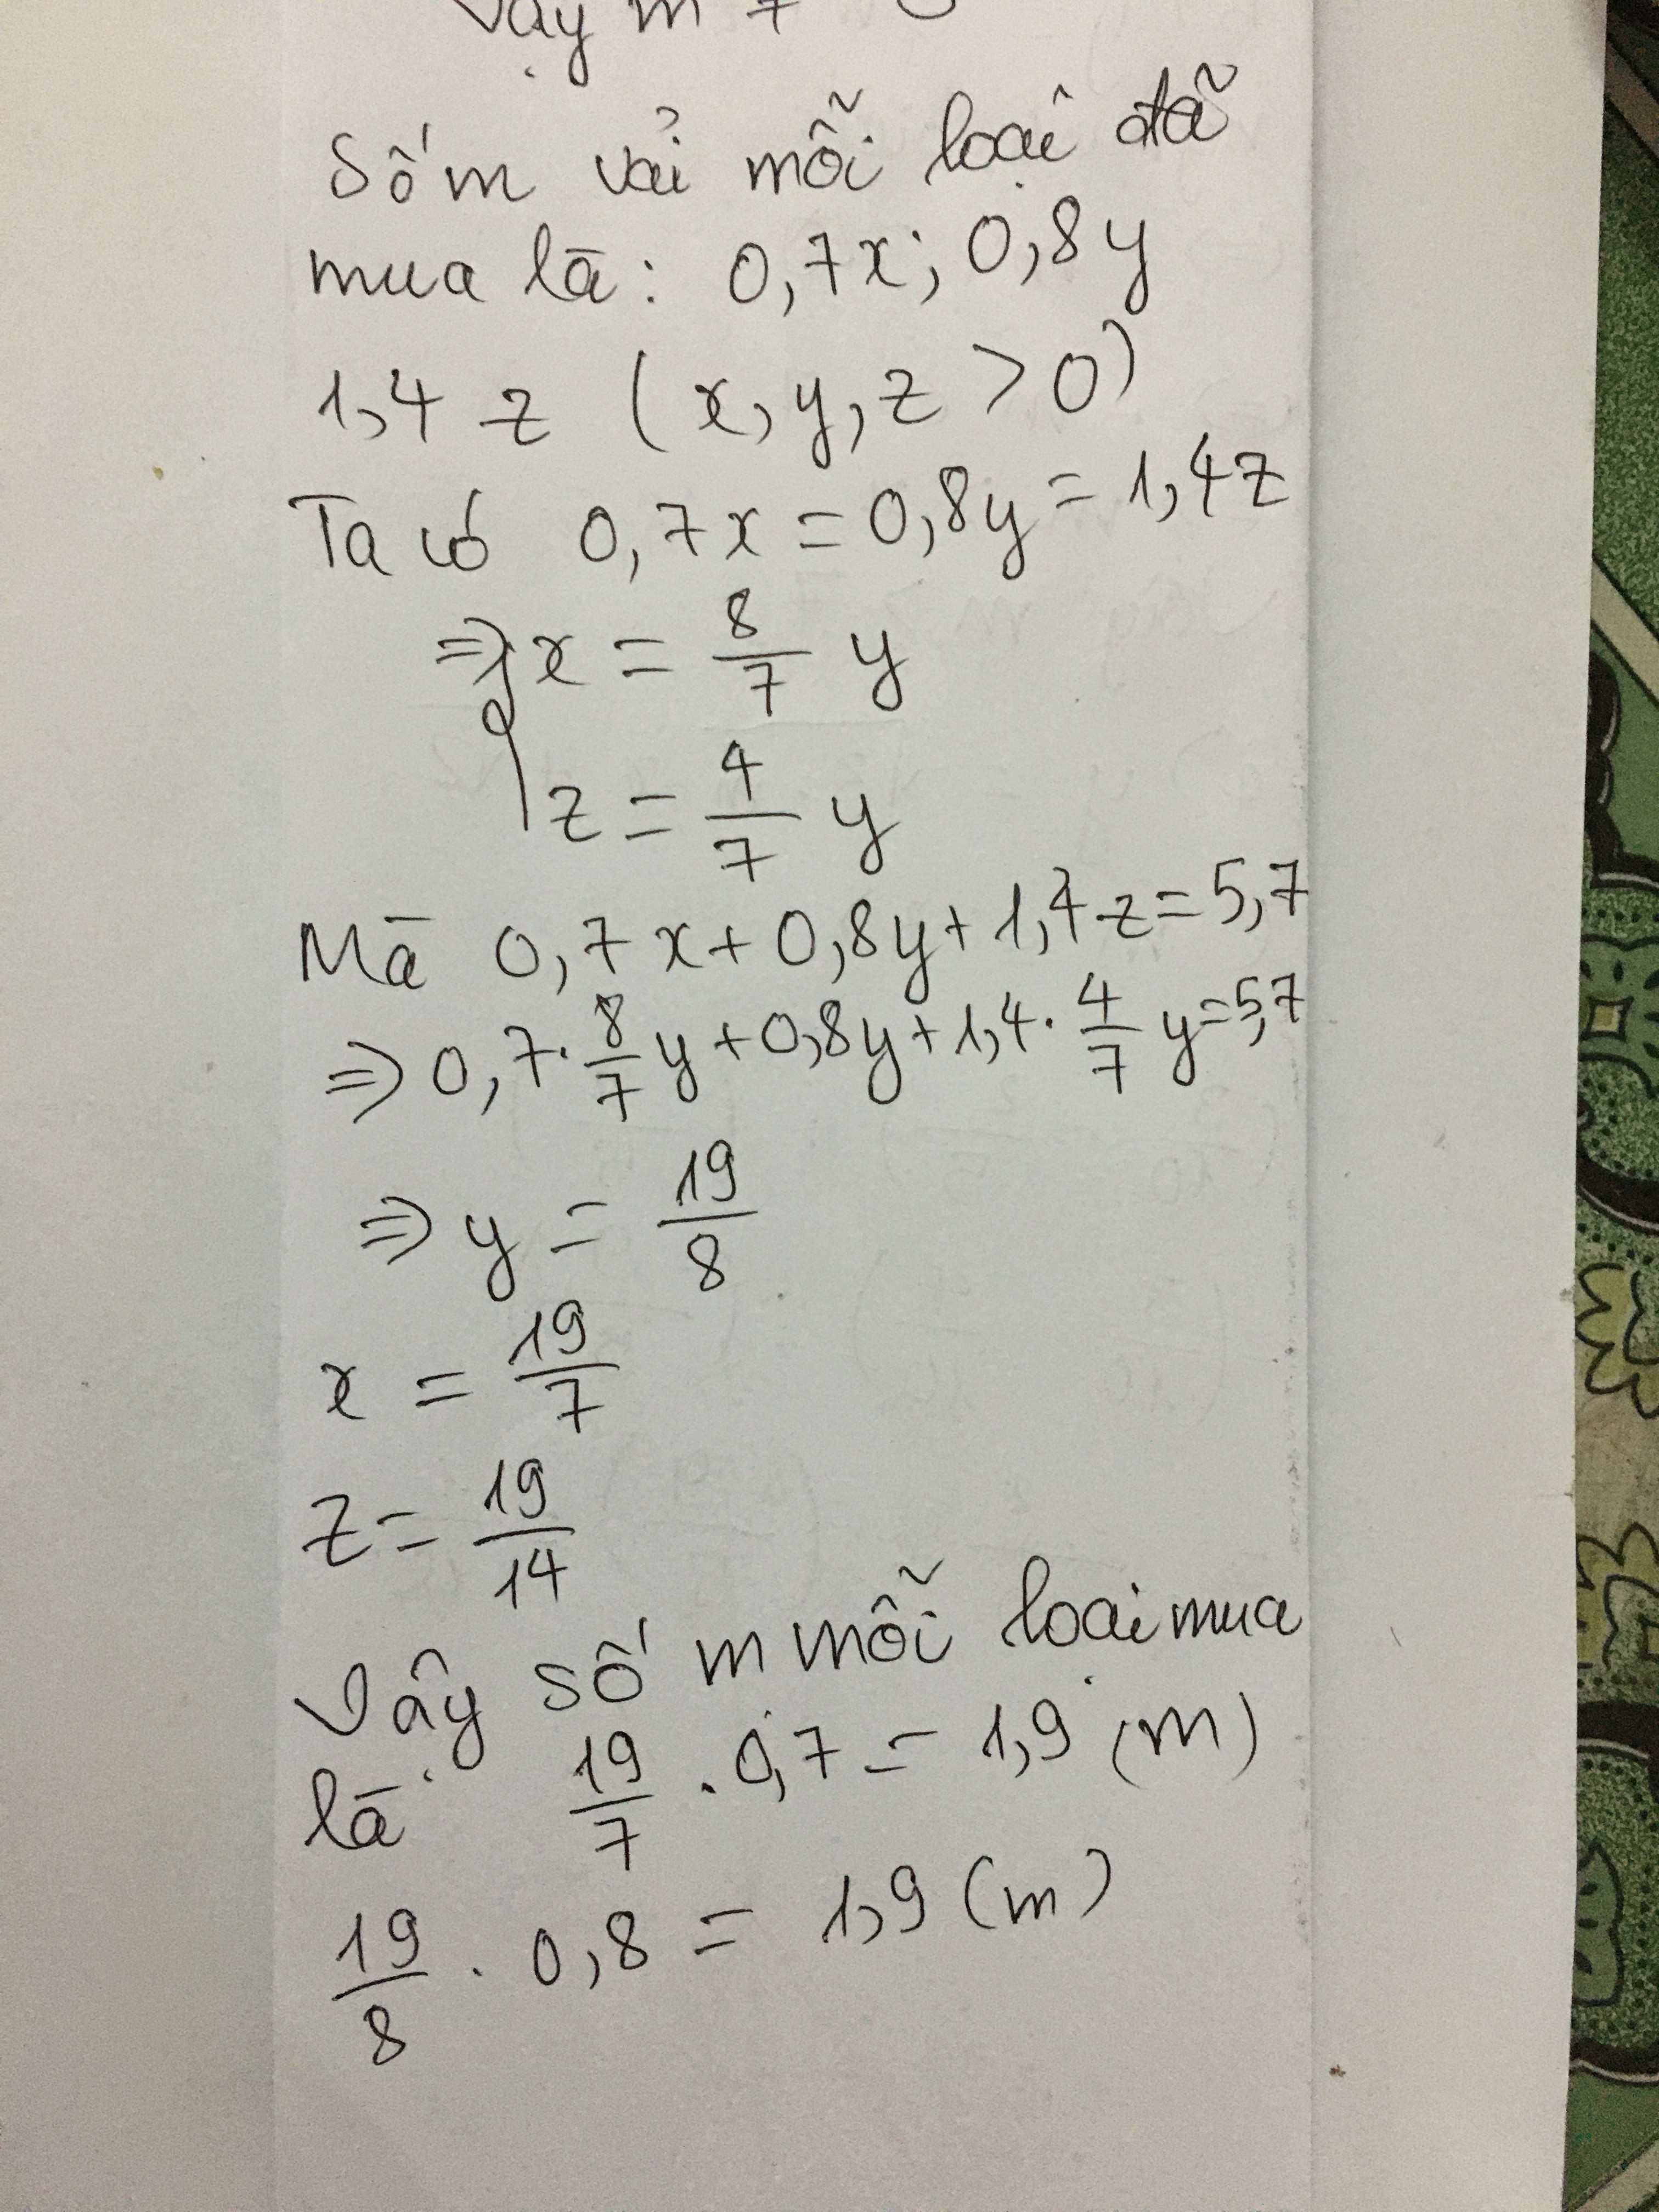 Vậy m
Số m vải mỗi loại đã
mua là: 0,7x; 0,8y
1,4 z (x, y, z > 0)
Ta có 0,7x = 0,8y = 1,4z
=> x = 8/7 y
z = 4/7 y
Mà 0,7 x + 0,8y + 1,4 z = 5,7
=> 0,7 . 8/7 y + 0,8y + 1,4 . 4/7 y = 5,7
=> y = 19/8
x = 19/7
z = 19/14
Vậy số m mỗi loại mua
là 19/7 . 0,7 = 1,9 (m)
19/8 . 0,8 = 1,9 (m)